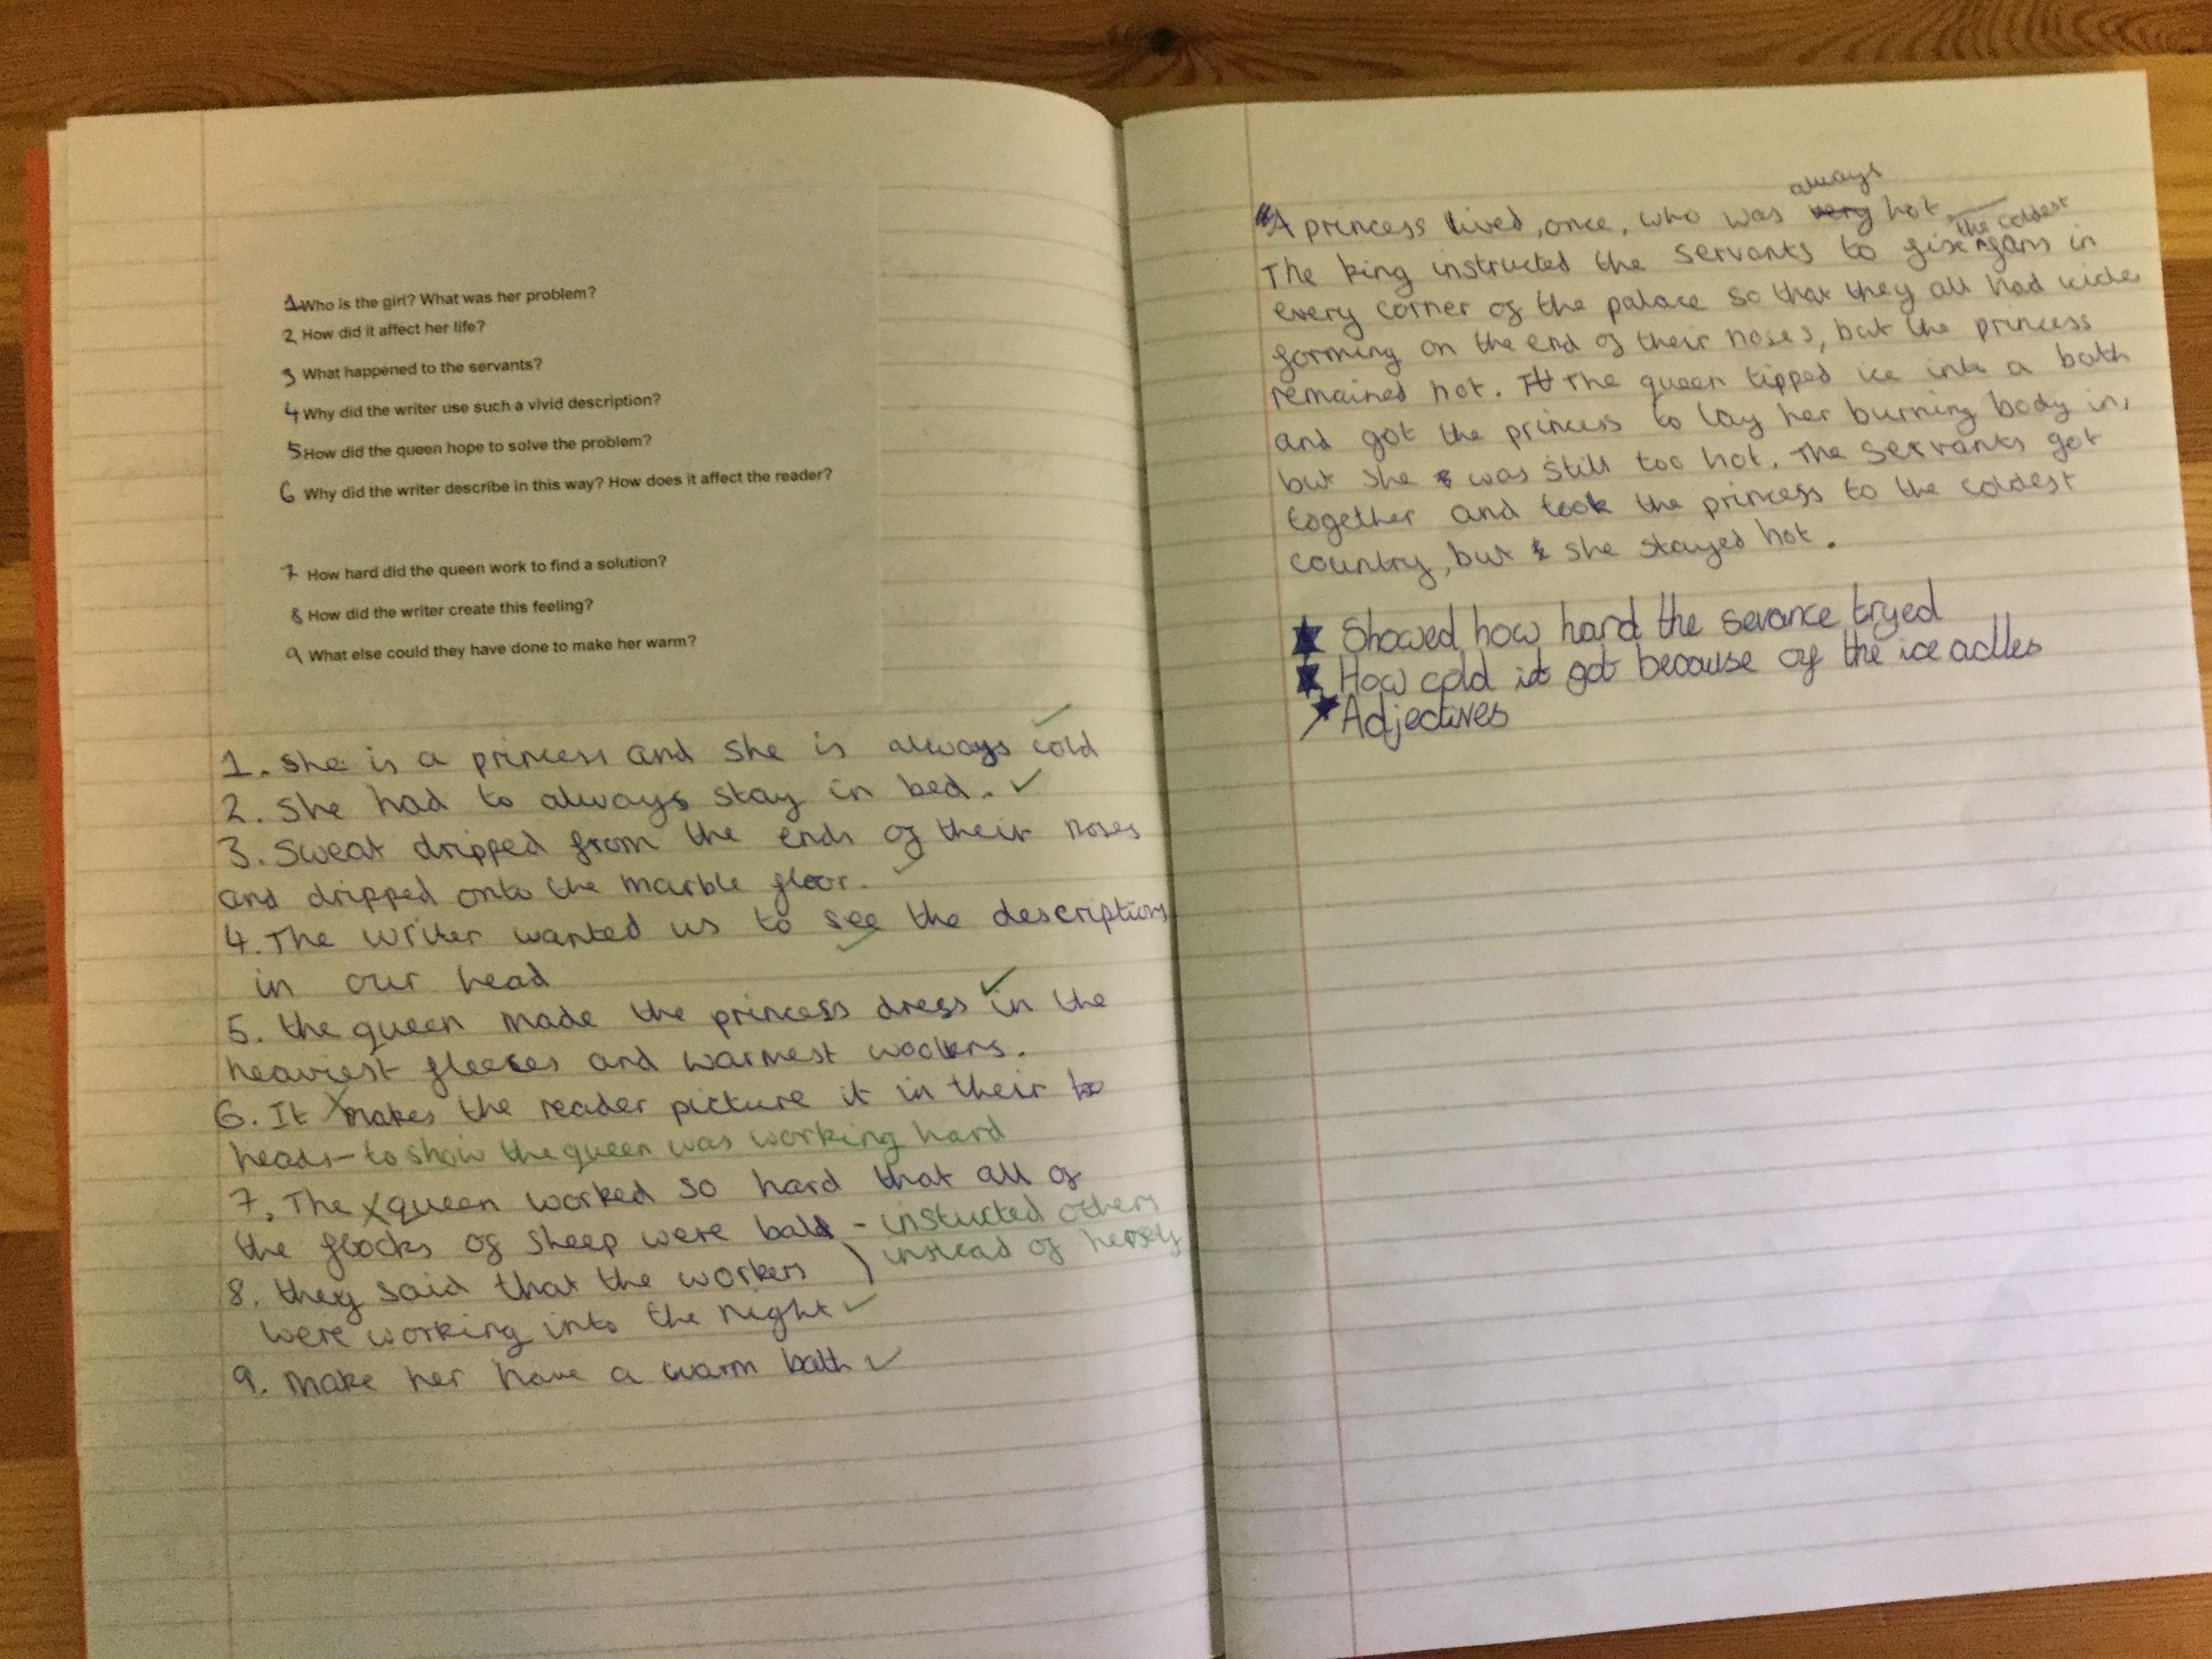 1 Who is the girl? What was her problem?
2 How did it affect her life?
3 What happened to the servants?
4 Why did the writer use such a vivid description?
5 How did the queen hope to solve the problem?
6 Why did the writer describe in this way? How does it affect the reader?
7 How hard did the queen work to find a solution?
8 How did the writer create this feeling?
9 What else could they have done to make her warm?
1. She is a princess and she is always cold
2. She had to always stay in bed.
3. Sweat dripped from the ends of their noses
and dripped onto the marble floor.
4. The writer wanted us to see the description
in our head
5. the queen made the princess dress in the
heaviest fleeces and warmest woolens.
6. It makes the reader picture it in their
heads - to show the queen was working hard
7. The queen worked so hard that all of
the flocks of sheep were bald - instucted others
instead of herself
8. they said that the workers
were working into the night
9. make her have a warm bath
always
"A princess lived, once, who was very hot
the coldest
The king instructed the servants to fix fans in
every corner of the palace so that they all had
forming on the end of their noses, but the princess
remained hot. The queen tipped ice into a bath
and got the princess to lay her burning body in,
but she was still too hot. The servants got
together and took the princess to the coldest
country, but she stayed hot.
Showed how hard the sevance tryed
How cold it got because of the ice adles
Adjectives